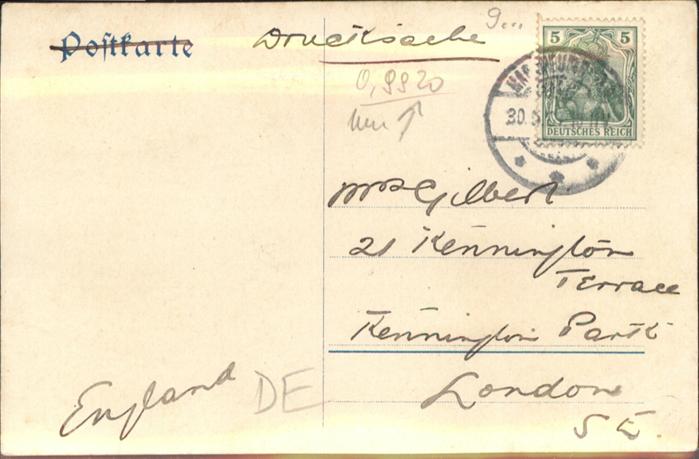 Postkarte
Drucksache
5 5
DEUTSCHES REICH
30.5.
0,9920
Mrs Gilbert
21 Kennington
Terrace
Kennington Park
London
S E.
England
DE